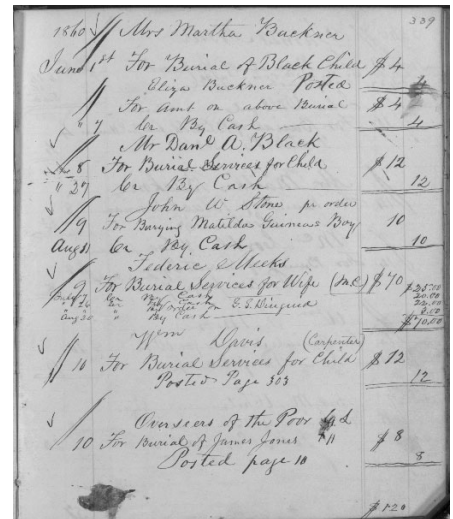 339
1860 Mrs Martha Buckner
June 1st For Burial of Black Child $4
Eliza Buckner Posted 4
For Amt on above Burial $4
" 7 Cr By Cash 4
Mr Danl A. Black
" 8 For Burial Services for Child $12
" 27 Cr By Cash 12
John W. Stone pr order
" 9 For Burying Matilda Guineas Boy 10
Aug 11 Cr By Cash 10
Federic Meeks
" 9 For Burial Services for Wife $70
Cr By Cash $25.00
20.00
order on E. T. Dinguid 22.00
Aug 30 " By Cash 3.00
$70.00
Wm Davis (Carpenter)
" 10 For Burial Services for Child $12
Posted Page 303 12
Overseers of the Poor
" 10 For Burial of James Jones $8
Posted page 10 8
$120